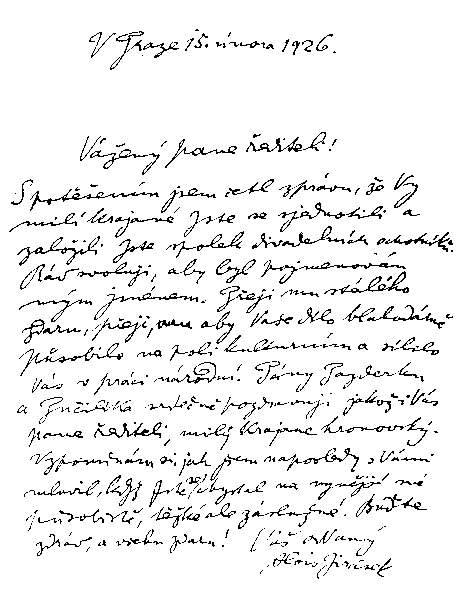 V Praze 15. února 1926.
Vážený pane řediteli!
S potěšením jsem četl zprávu, že Vy
milí krajané jste se sjednotili a
založili jste spolek divadelních ochotníků.
Rád svoluji, aby byl pojmenován
mým jménem. Přeji mu stálého
zdaru, přeji, aby Vaše dílo blahodárně
působilo na poli kulturním a sílilo
Vás v práci národní. Pány Pazderku
a srdečně pozdravuji jakož i Vás
pane řediteli, milý krajane hronovský.
Vzpomínám si, jak jsem naposledy s Vámi
mluvil, když jste se chystal na nynější své
působiště, těžké ale záslužné. Buďte
zdráv, a mnoho zdaru! Váš oddaný
Alois Jirásek